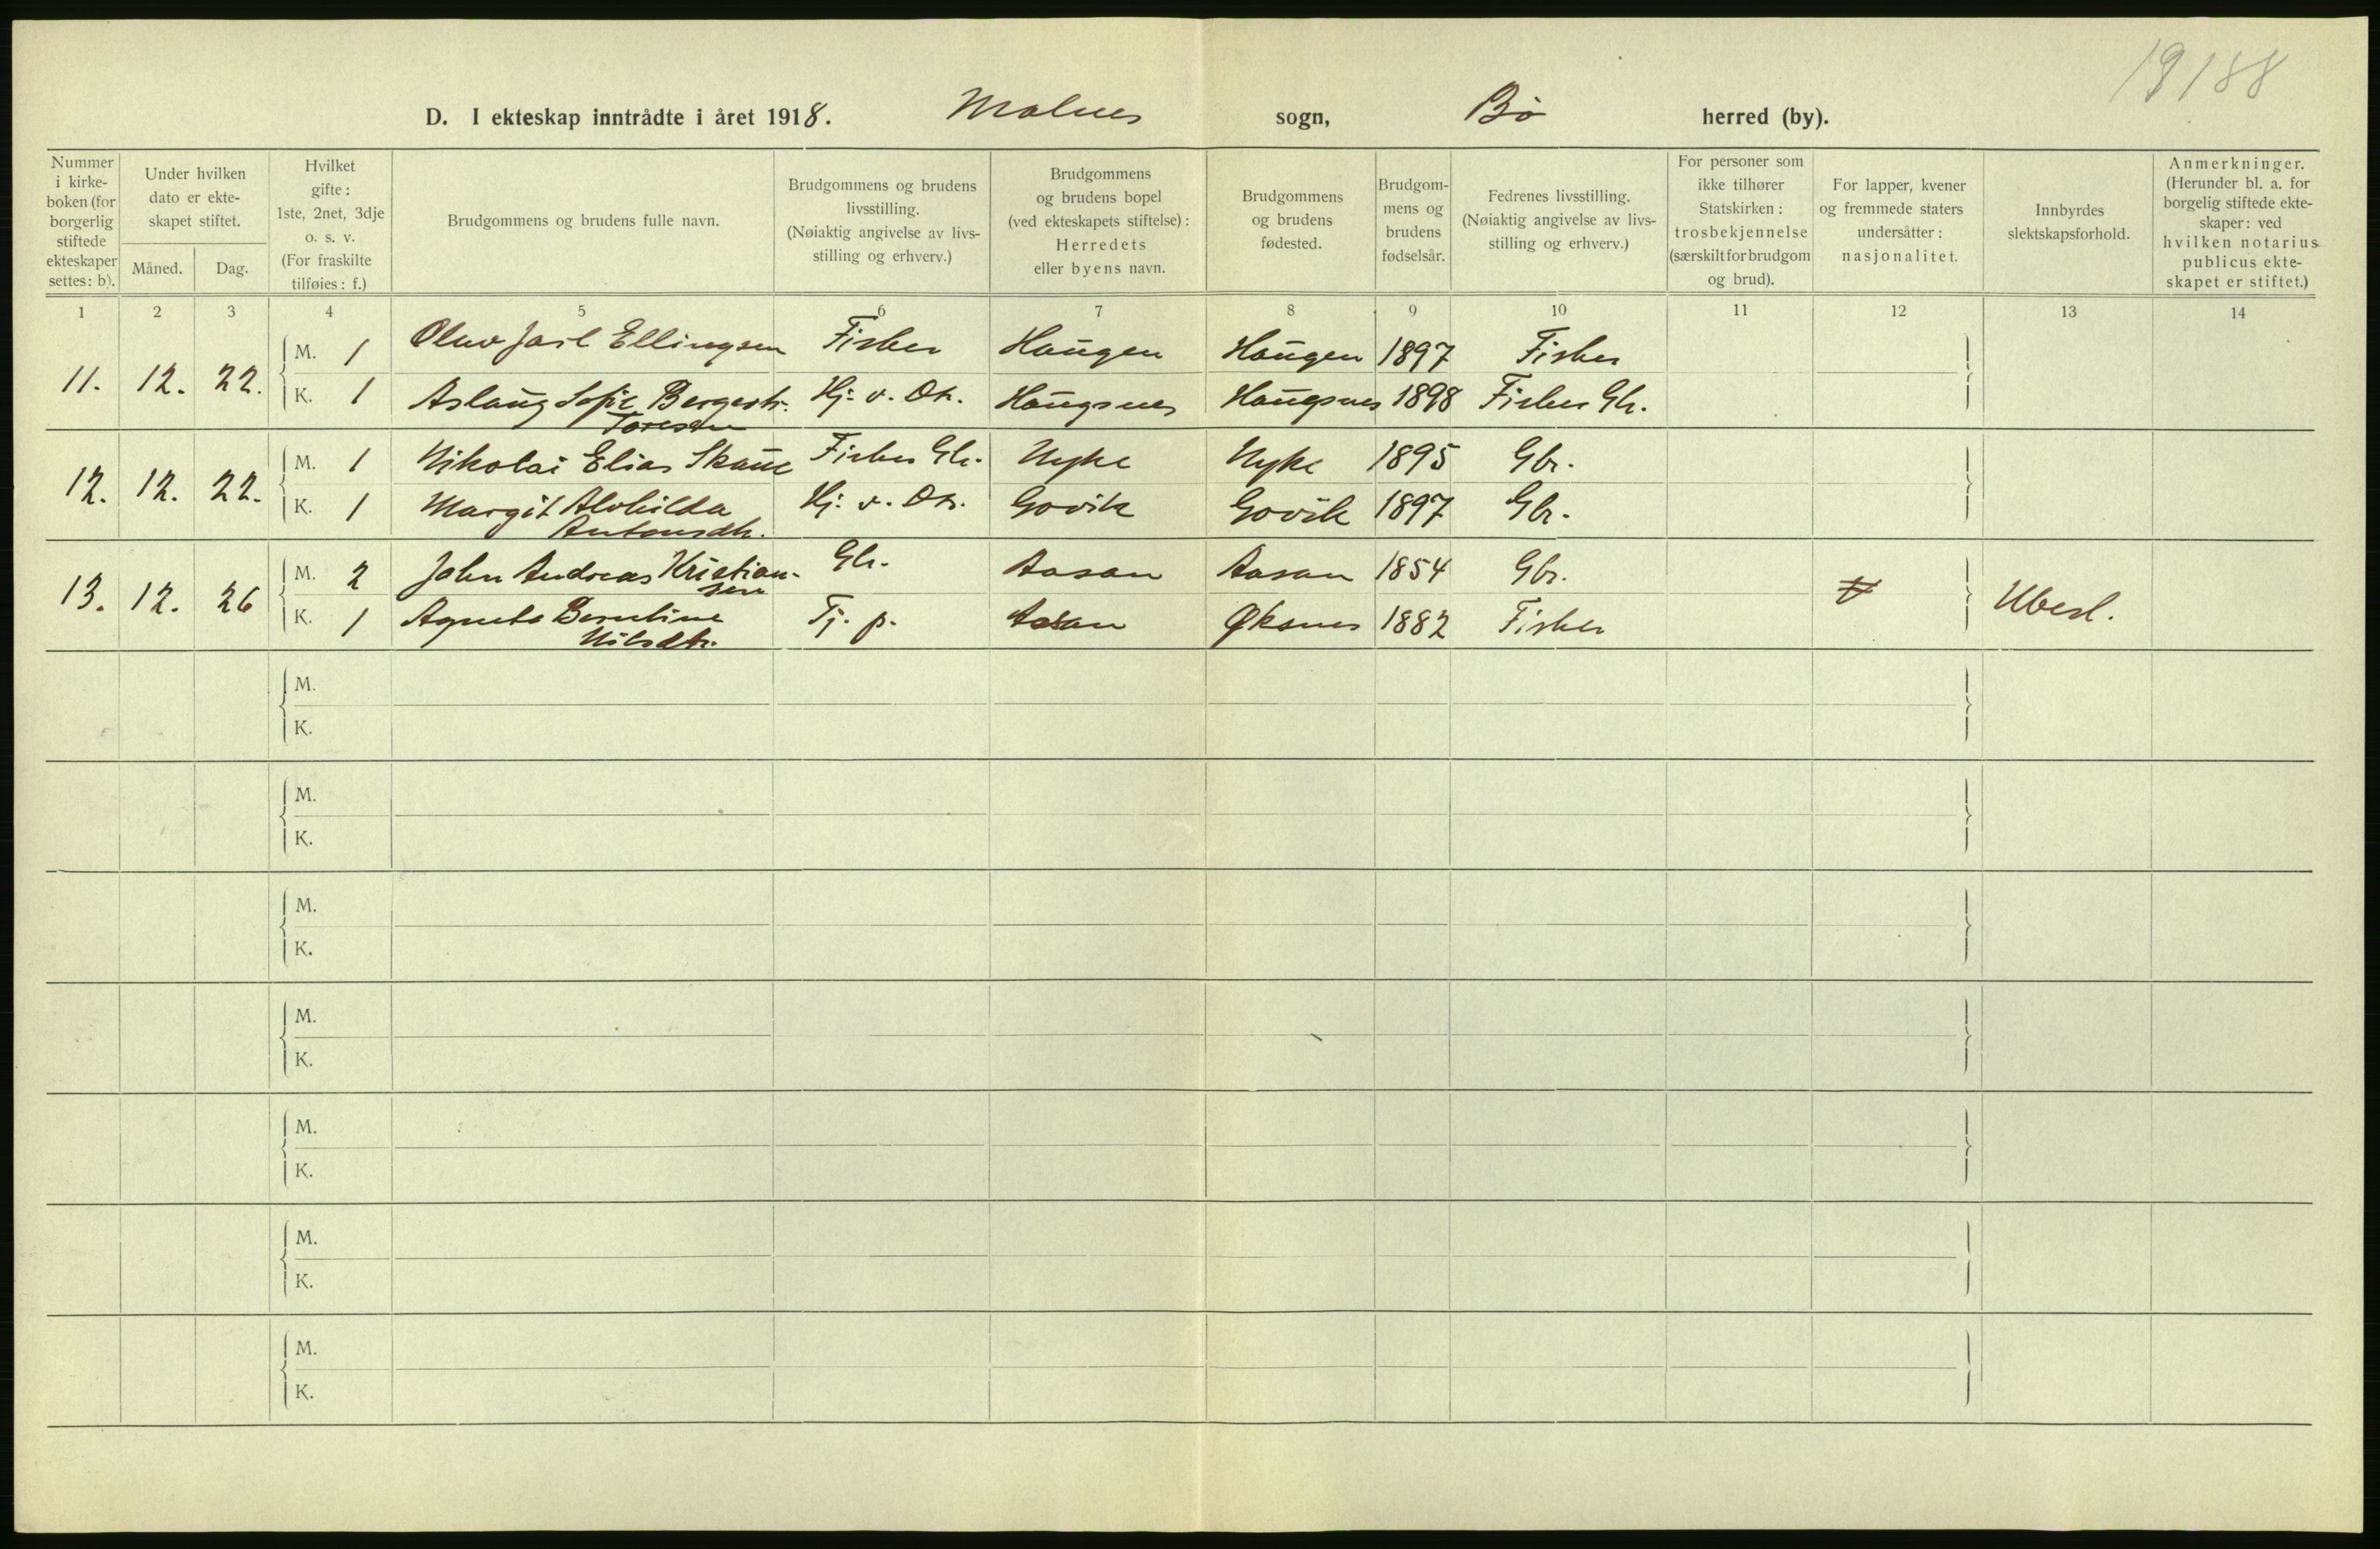 19188
D. I ekteskap inntrådte i året 1918. Malnes sogn, Bø herred (by).
Nummer i kirkeboken (for borgerlig stiftede ekteskaper settes: b).
Under hvilken dato er ekteskapet stiftet.
Måned. Dag.
Hvilket gifte: 1ste, 2net, 3dje o. s. v. (For fraskilte tilføies: f.)
Brudgommens og brudens fulle navn.
Brudgommens og brudens livsstilling. (Nøiaktig angivelse av livsstilling og erhverv.)
Brudgommens og brudens bopel (ved ekteskapets stiftelse): Herredets eller byens navn.
Brudgommens og brudens fødested.
Brudgommens og brudens fødselsår.
Fedrenes livsstilling. (Nøiaktig angivelse av livsstilling og erhverv.)
For personer som ikke tilhører Statskirken: trosbekjennelse (særskilt for brudgom og brud).
For lapper, kvener og fremmede staters undersåtter: nasjonalitet.
Innbyrdes slektskapsforhold.
Anmerkninger. (Herunder bl. a. for borgelig stiftede ekteskaper: ved hvilken notarius publicus ekteskapet er stiftet.)
1 2 3 4 5 6 7 8 9 10 11 12 13 14
11. 12. 22. M. 1 Olav Jarl Ellingsen Fisker Haugen Haugen 1897 Fisker
K. 1 Aslaug Sofie Bergestr. Hj. v. Dk. Haugsnes Haugsnes 1898 Fisker Gbr.
Toresen
12. 12. 22. M. 1 Nikolai Elias Skaue Fisker Gbr. Nyke Nyke 1895 Gbr.
K. 1 Margit Alvhilda Hj. v. Dk. Govik Govik 1897 Gbr.
Antonsdtr.
13. 12. 26 M. 2 John Andreas Kristian- Gbr. Aasan Aasan 1854 Gbr.
sen
K. 1 Agnete Berntine Tj. p. Aasan Øksnes 1882 Fisker Ubesl.
Nilsdtr.
M.
K.
M.
K.
M.
K.
M.
K.
M.
K.
M.
K.
M.
K.